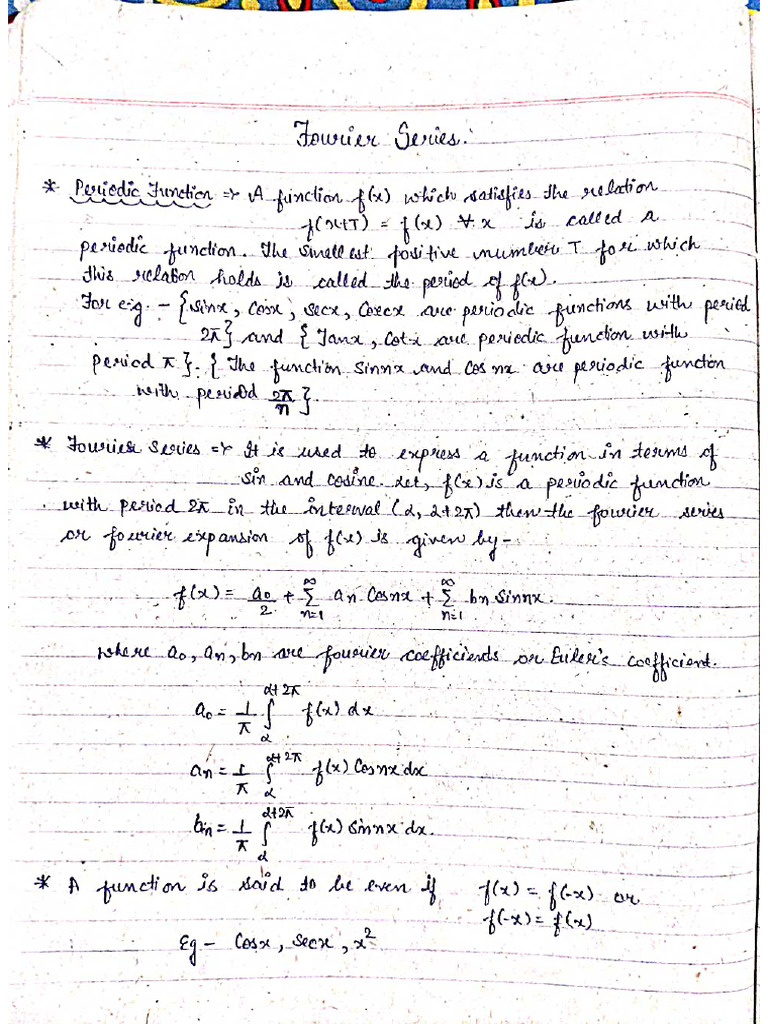 Fourier Series.
* Periodic Function => A function f(x) which satisfies the relation
f(x+T) = f(x) ∀ x is called a
periodic function. The smallest positive number T for which
this relation holds is called the period of f(x).
For eg. - {sinx, cosx, secx, cosecx are periodic functions with period
2π} and {Tanx, Cotx are periodic function with
period π}. {The function sinnx and cosnx are periodic function
with period 2π/n}.
* Fourier Series => It is used to express a function in terms of
sin and cosine. Let, f(x) is a periodic function
with period 2π in the interval (α, α+2π) then the fourier series
or fourier expansion of f(x) is given by -
f(x) = a₀/2 + ∞Σn=1 an Cosnx + ∞Σn=1 bn Sinnx.
where a₀, an, bn are fourier coefficients or Euler's coefficient.
a₀ = 1/π ∫α^α+2π f(x) dx
an = 1/π ∫α^α+2π f(x) Cosnx dx
bn = 1/π ∫α^α+2π f(x) Sinnx dx.
* A function is said to be even if f(x) = f(-x) or
f(-x) = f(x)
Eg - Cosx, secx, x²